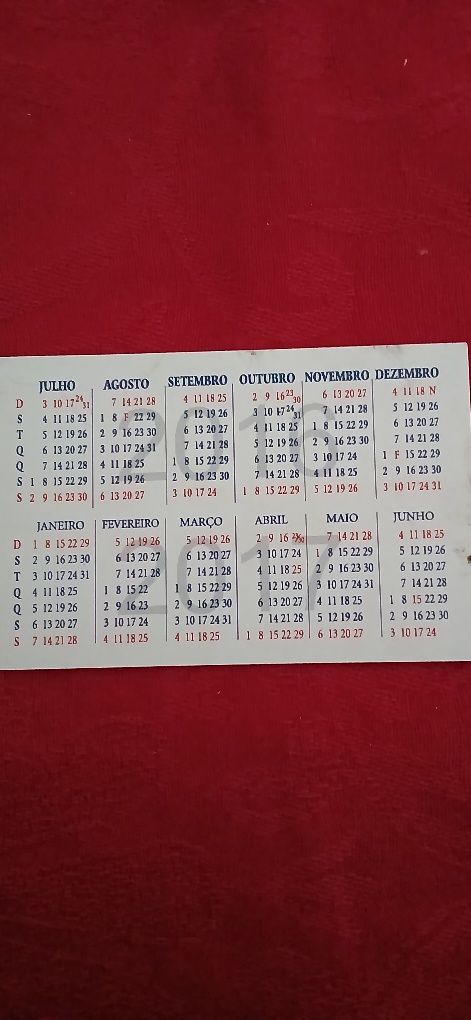 JULHO AGOSTO SETEMBRO OUTUBRO NOVEMBRO DEZEMBRO
D 3 10 17 24 31 7 14 21 28 4 11 18 25 2 9 16 23 30 6 13 20 27 4 11 18 N
S 4 11 18 25 1 8 F 22 29 5 12 19 26 3 10 17 24 31 7 14 21 28 5 12 19 26
T 5 12 19 26 2 9 16 23 30 6 13 20 27 4 11 18 25 1 8 15 22 29 6 13 20 27
Q 6 13 20 27 3 10 17 24 31 7 14 21 28 5 12 19 26 2 9 16 23 30 7 14 21 28
Q 7 14 21 28 4 11 18 25 1 8 15 22 29 6 13 20 27 3 10 17 24 1 F 15 22 29
S 1 8 15 22 29 5 12 19 26 2 9 16 23 30 7 14 21 28 4 11 18 25 2 9 16 23 30
S 2 9 16 23 30 6 13 20 27 3 10 17 24 1 8 15 22 29 5 12 19 26 3 10 17 24 31
2016
JANEIRO FEVEREIRO MARÇO ABRIL MAIO JUNHO
D 1 8 15 22 29 5 12 19 26 5 12 19 26 2 9 16 23/30 7 14 21 28 4 11 18 25
S 2 9 16 23 30 6 13 20 27 6 13 20 27 3 10 17 24 1 8 15 22 29 5 12 19 26
T 3 10 17 24 31 7 14 21 28 7 14 21 28 4 11 18 25 2 9 16 23 30 6 13 20 27
Q 4 11 18 25 1 8 15 22 1 8 15 22 29 5 12 19 26 3 10 17 24 31 7 14 21 28
Q 5 12 19 26 2 9 16 23 2 9 16 23 30 6 13 20 27 4 11 18 25 1 8 15 22 29
S 6 13 20 27 3 10 17 24 3 10 17 24 31 7 14 21 28 5 12 19 26 2 9 16 23 30
S 7 14 21 28 4 11 18 25 4 11 18 25 1 8 15 22 29 6 13 20 27 3 10 17 24
2017